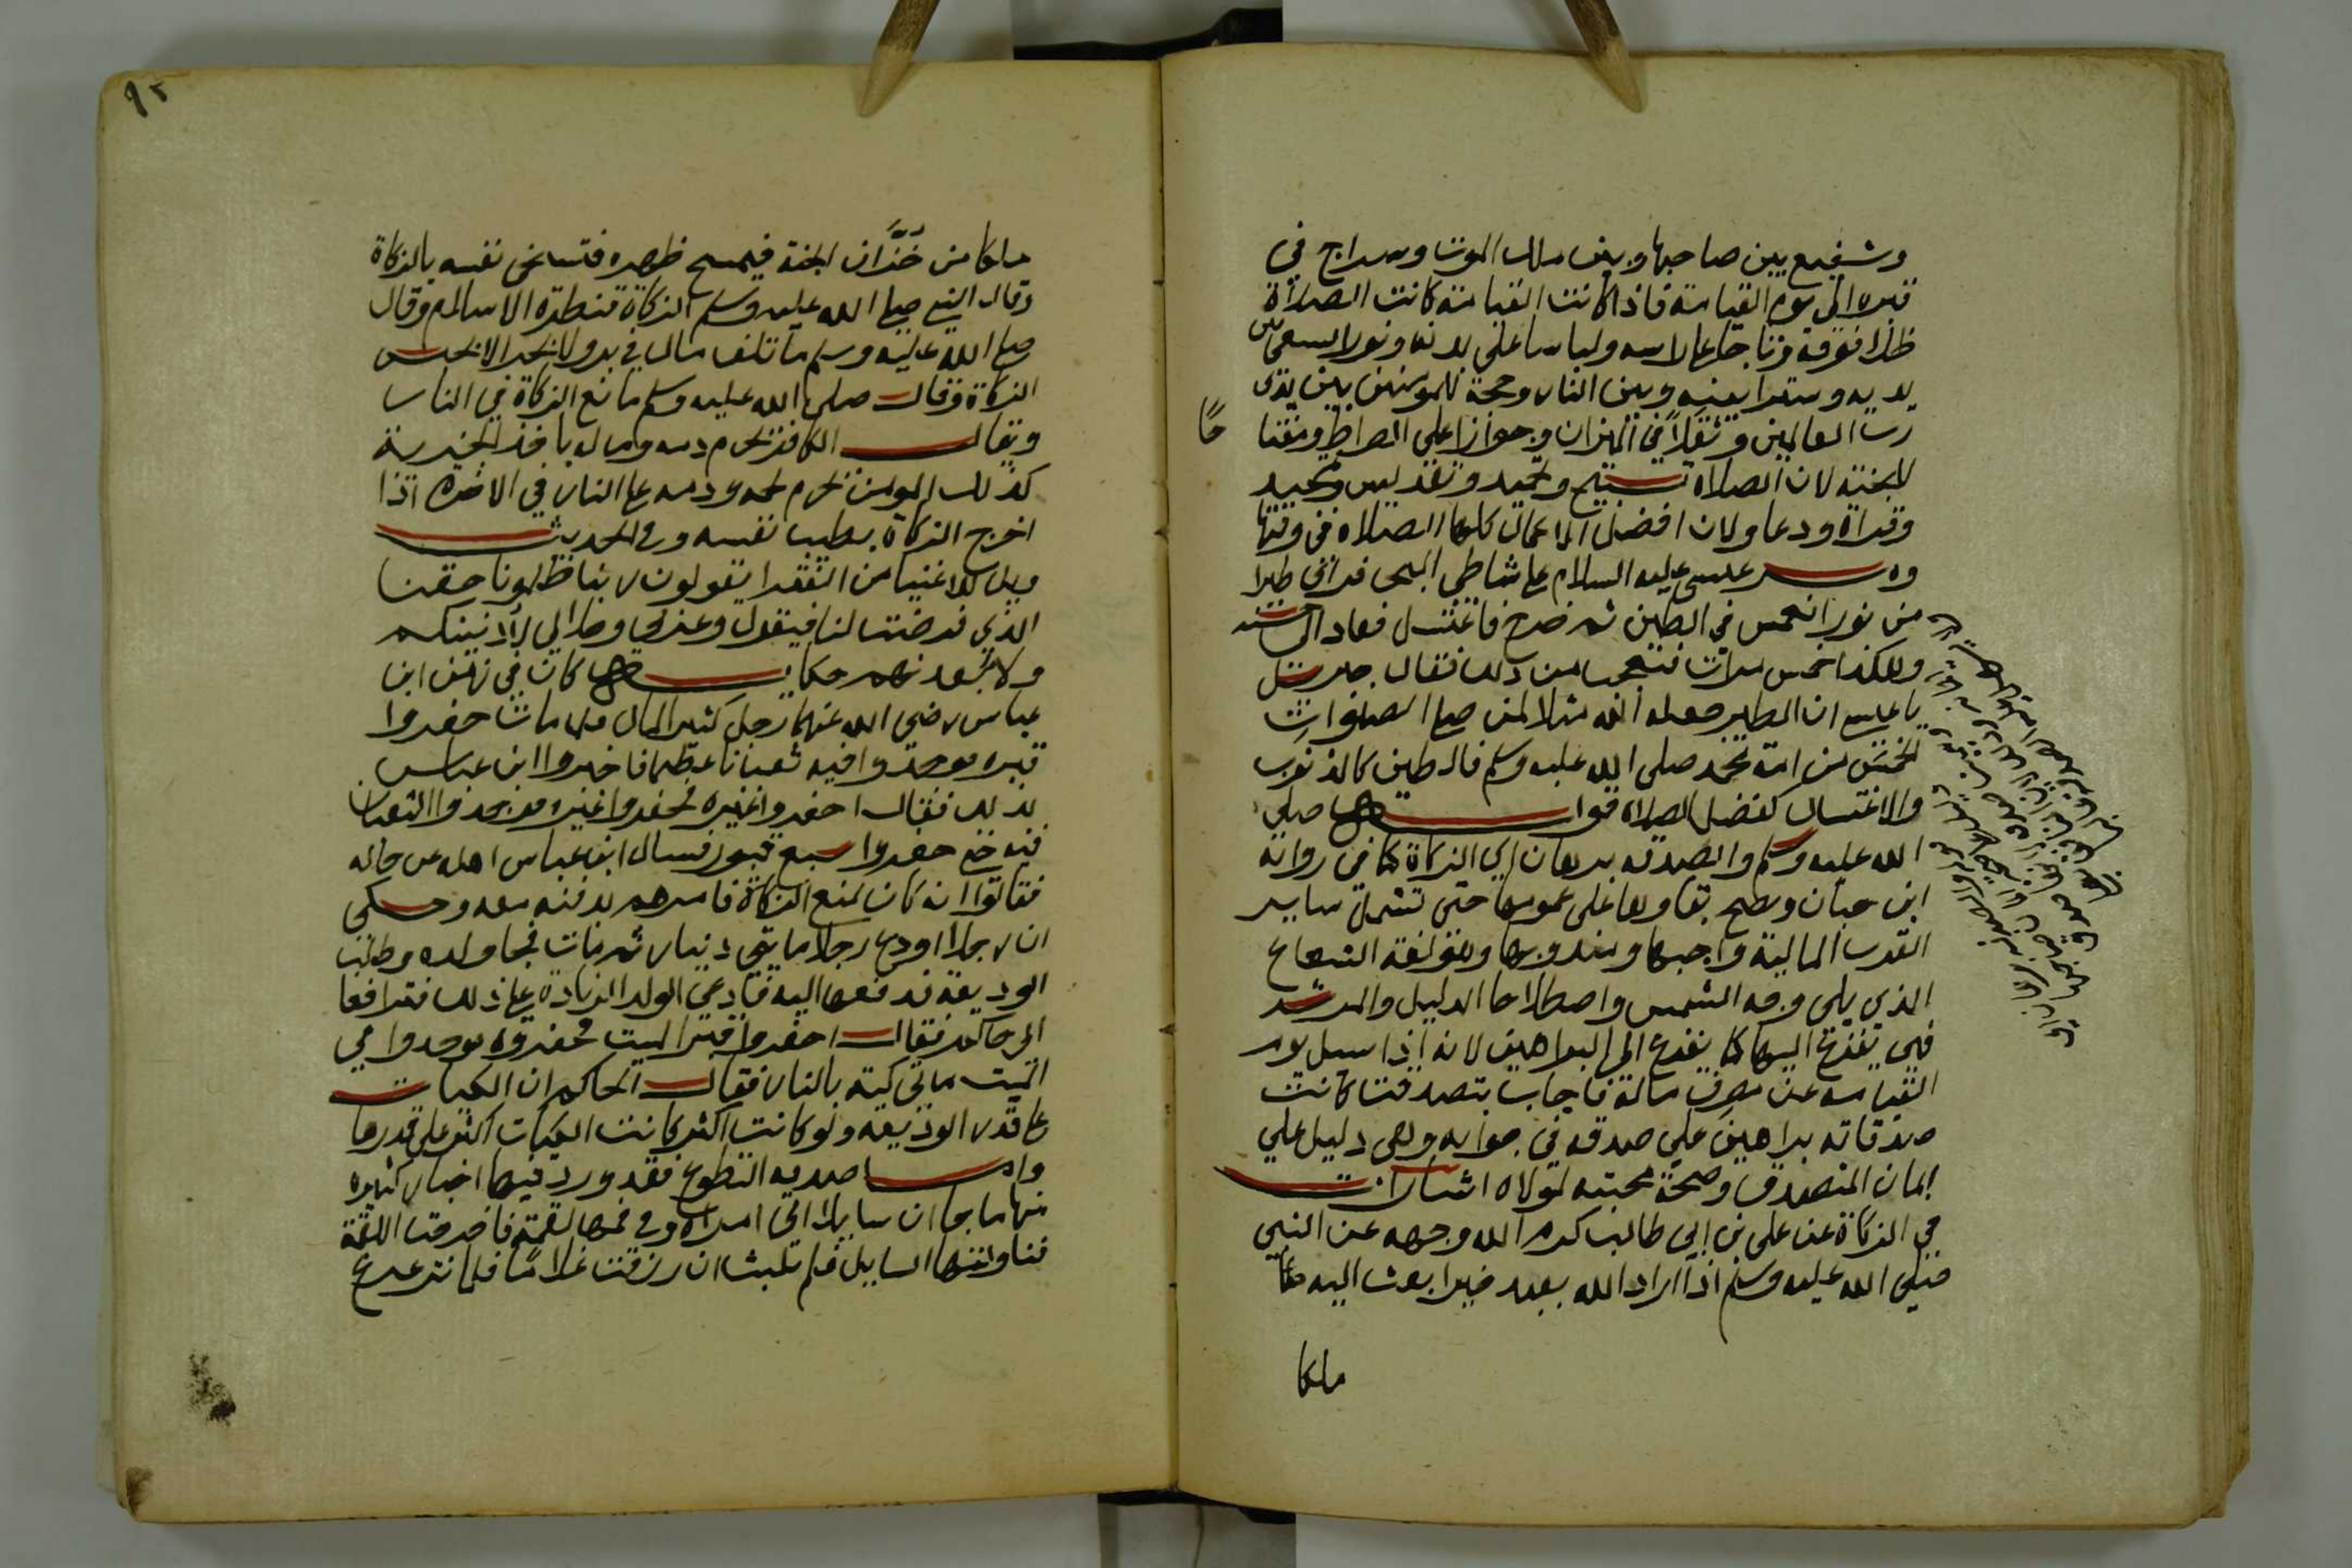 وشفيع بين صاحبها وبين ملك الموت وسراج في
قبره الى يوم القيامة فاذا كانت القيامة كانت الصلاة
ظلا فوقه وتاجا على راسه ولباسا على بدنه ونورا يسعى بين
يديه وسترا بينه وبين النار وحجة للمومنين بين يدي
رب العالمين وثقلا في الميزان وجوازا على الصراط ومفتا
حا
للجنة لان الصلاة تسبيح وتحميد وتقديس وتمجيد
وقراة ودعا ولان افضل الاعمال كلها الصلاة في وقتها
ومر عيسى عليه السلام على شاطى البحر فراى طيرا
من نور انغمس في الطين ثم خرج فاغتسل فعاد الى حسنه
وهكذا خمس مرات فتعجب من ذلك فقال جبريل
يا عيسى ان الطير جعله الله مثلا لمن صلى الصلوات
الخمس من امة محمد صلى الله عليه وسلم فالطين كالذنوب
والاغتسال كفضل الصلاة قوله صلى
الله عليه وسلم والصدقة برهان اي الزكاة كما في رواية
ابن حبان ويصح بقاوها على عمومها حتى تشمل ساير
القرب المالية واجبها ومندوبها وهو لغة الشعاع
الذي يلى وجه الشمس واصطلاحا الدليل والمرشد
فهي يفزع اليها كما يفزع الى البراهين لانه اذا سيل يوم
القيامه عن مصرف ماله فاجاب بتصدقت كانت
صدقاته براهين على صدقه في جوابه وهي دليل على
ايمان المتصدق وصحة محبته لمولاه اشارات
في الزكاة عن على بن ابى طالب كرم الله وجهه عن النبي
صلى الله عليه وسلم اذا اراد الله بعبد خيرا بعث اليه
ملكا
٩٢
ملكا من خزان الجنة فيمسح ظهره فتسخى نفسه بالزكاة
وقال النبي صلى الله عليه وسلم الزكاة قنطرة الاسلام وقال
صلى الله عليه وسلم ما تلف مال في بر ولا بحر الا بحبس
الزكاة وقال صلى الله عليه وسلم مانع الزكاة في النار
ويقال الكافر يحرم دمه وماله باخذ الجزية
كذلك المومن يحرم لحمه ودمه على النار في الاخرة اذا
اخرج الزكاة بطيب نفسه وفي الحديث
ويل للاغنيا من الفقرا يقولون ربنا ظلمونا حقنا
الذي فرضت لنا فيقول وعزتي وجلالي لادنينكم
ولابعدنهم حكاية كان في زمن ابن
عباس رضي الله عنهما رجل كثير المال فلما مات حفروا
قبره فوجدوا فيه ثعبانا عظيما فاخبروا ابن عباس
بذلك فقال احفروا غيره فحفروا غيره فوجدوا الثعبان
فيه حتى حفروا سبع قبور فسال ابن عباس اهله عن حاله
فقالوا انه كان يمنع الزكاة فامرهم بدفنه معه وحكى
ان رجلا اودع رجلا مايتي دينار ثم مات فجا ولده وطلب
الوديعة فدفعها اليه فادعى الولد الزيادة على ذلك فترافعا
الى حاكم فقال احفروا قبر الميت فحفروه فوجدوا في
الميت مايتي كية بالنار فقال الحاكم ان الكيات
على قدر الوديعه ولو كانت اكثر كانت الكيات اكثر على قدرها
واما صدقة التطوع فقد ورد فيها اخبار كثيرة
منها ما جا ان سايلا اتى امراة وفي فمها لقمة فاخرجت اللقمة
فناولتها السايل فلم تلبث ان رزقت غلاما فلما ترعرع